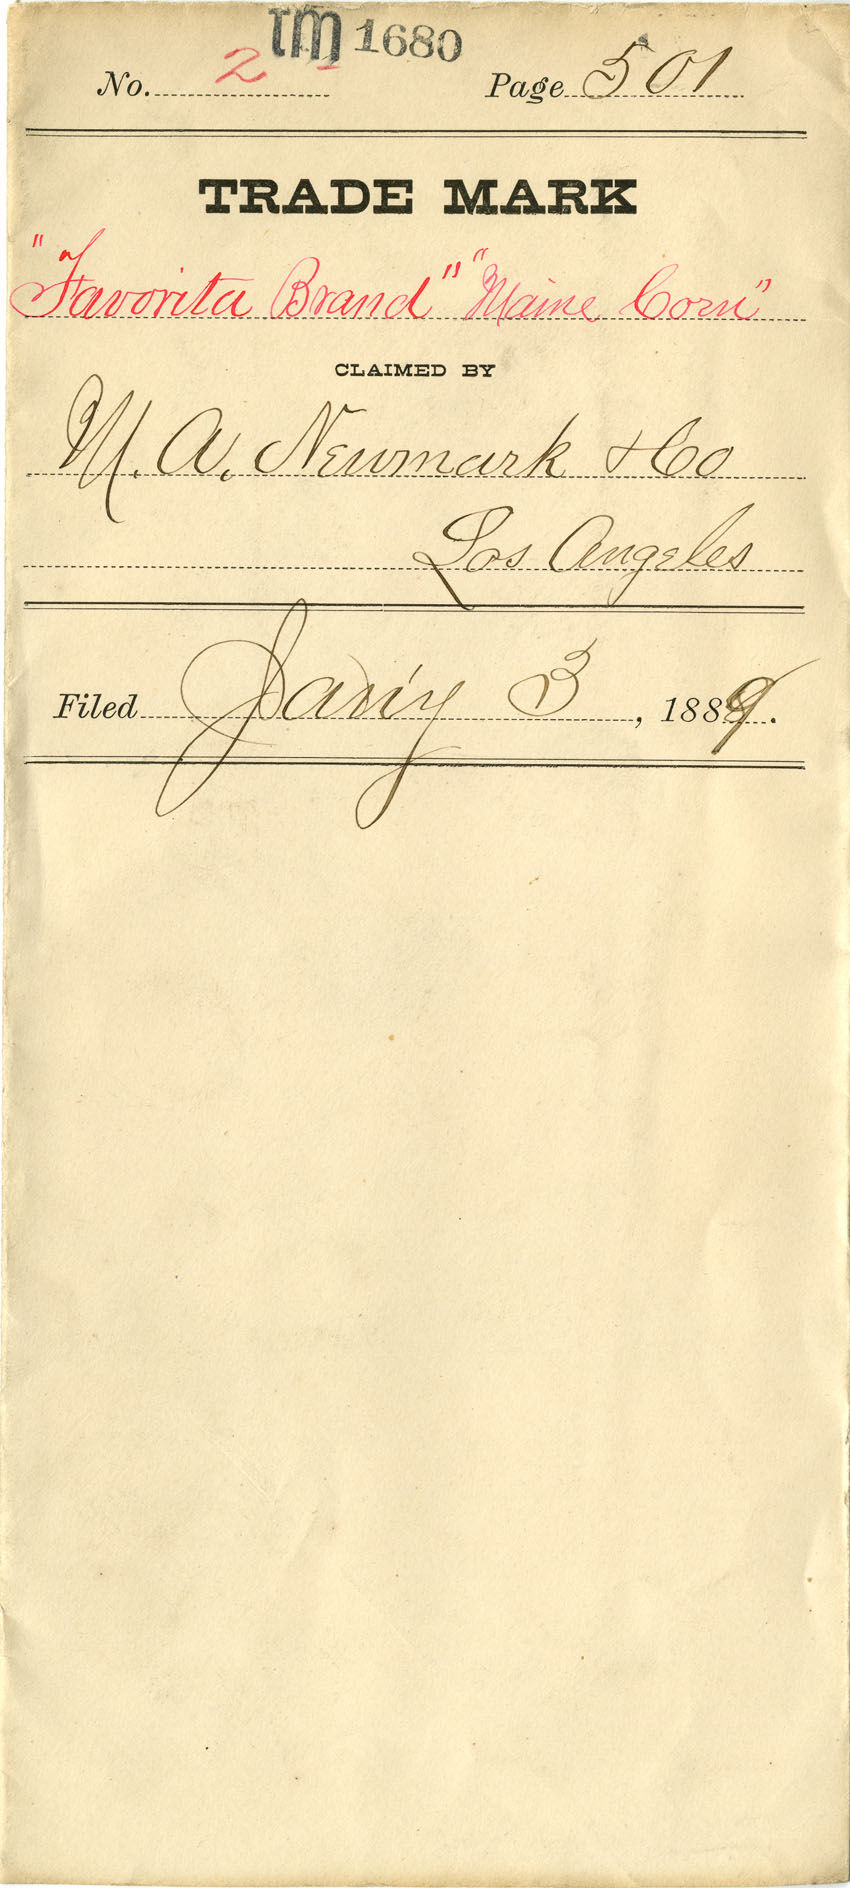 TM 1680
No. 2 Page 501
TRADE MARK
"Favorita Brand" "Maine Corn"
CLAIMED BY
M. A. Newmark & Co
Los Angeles
Filed Jan'y 3, 1889.